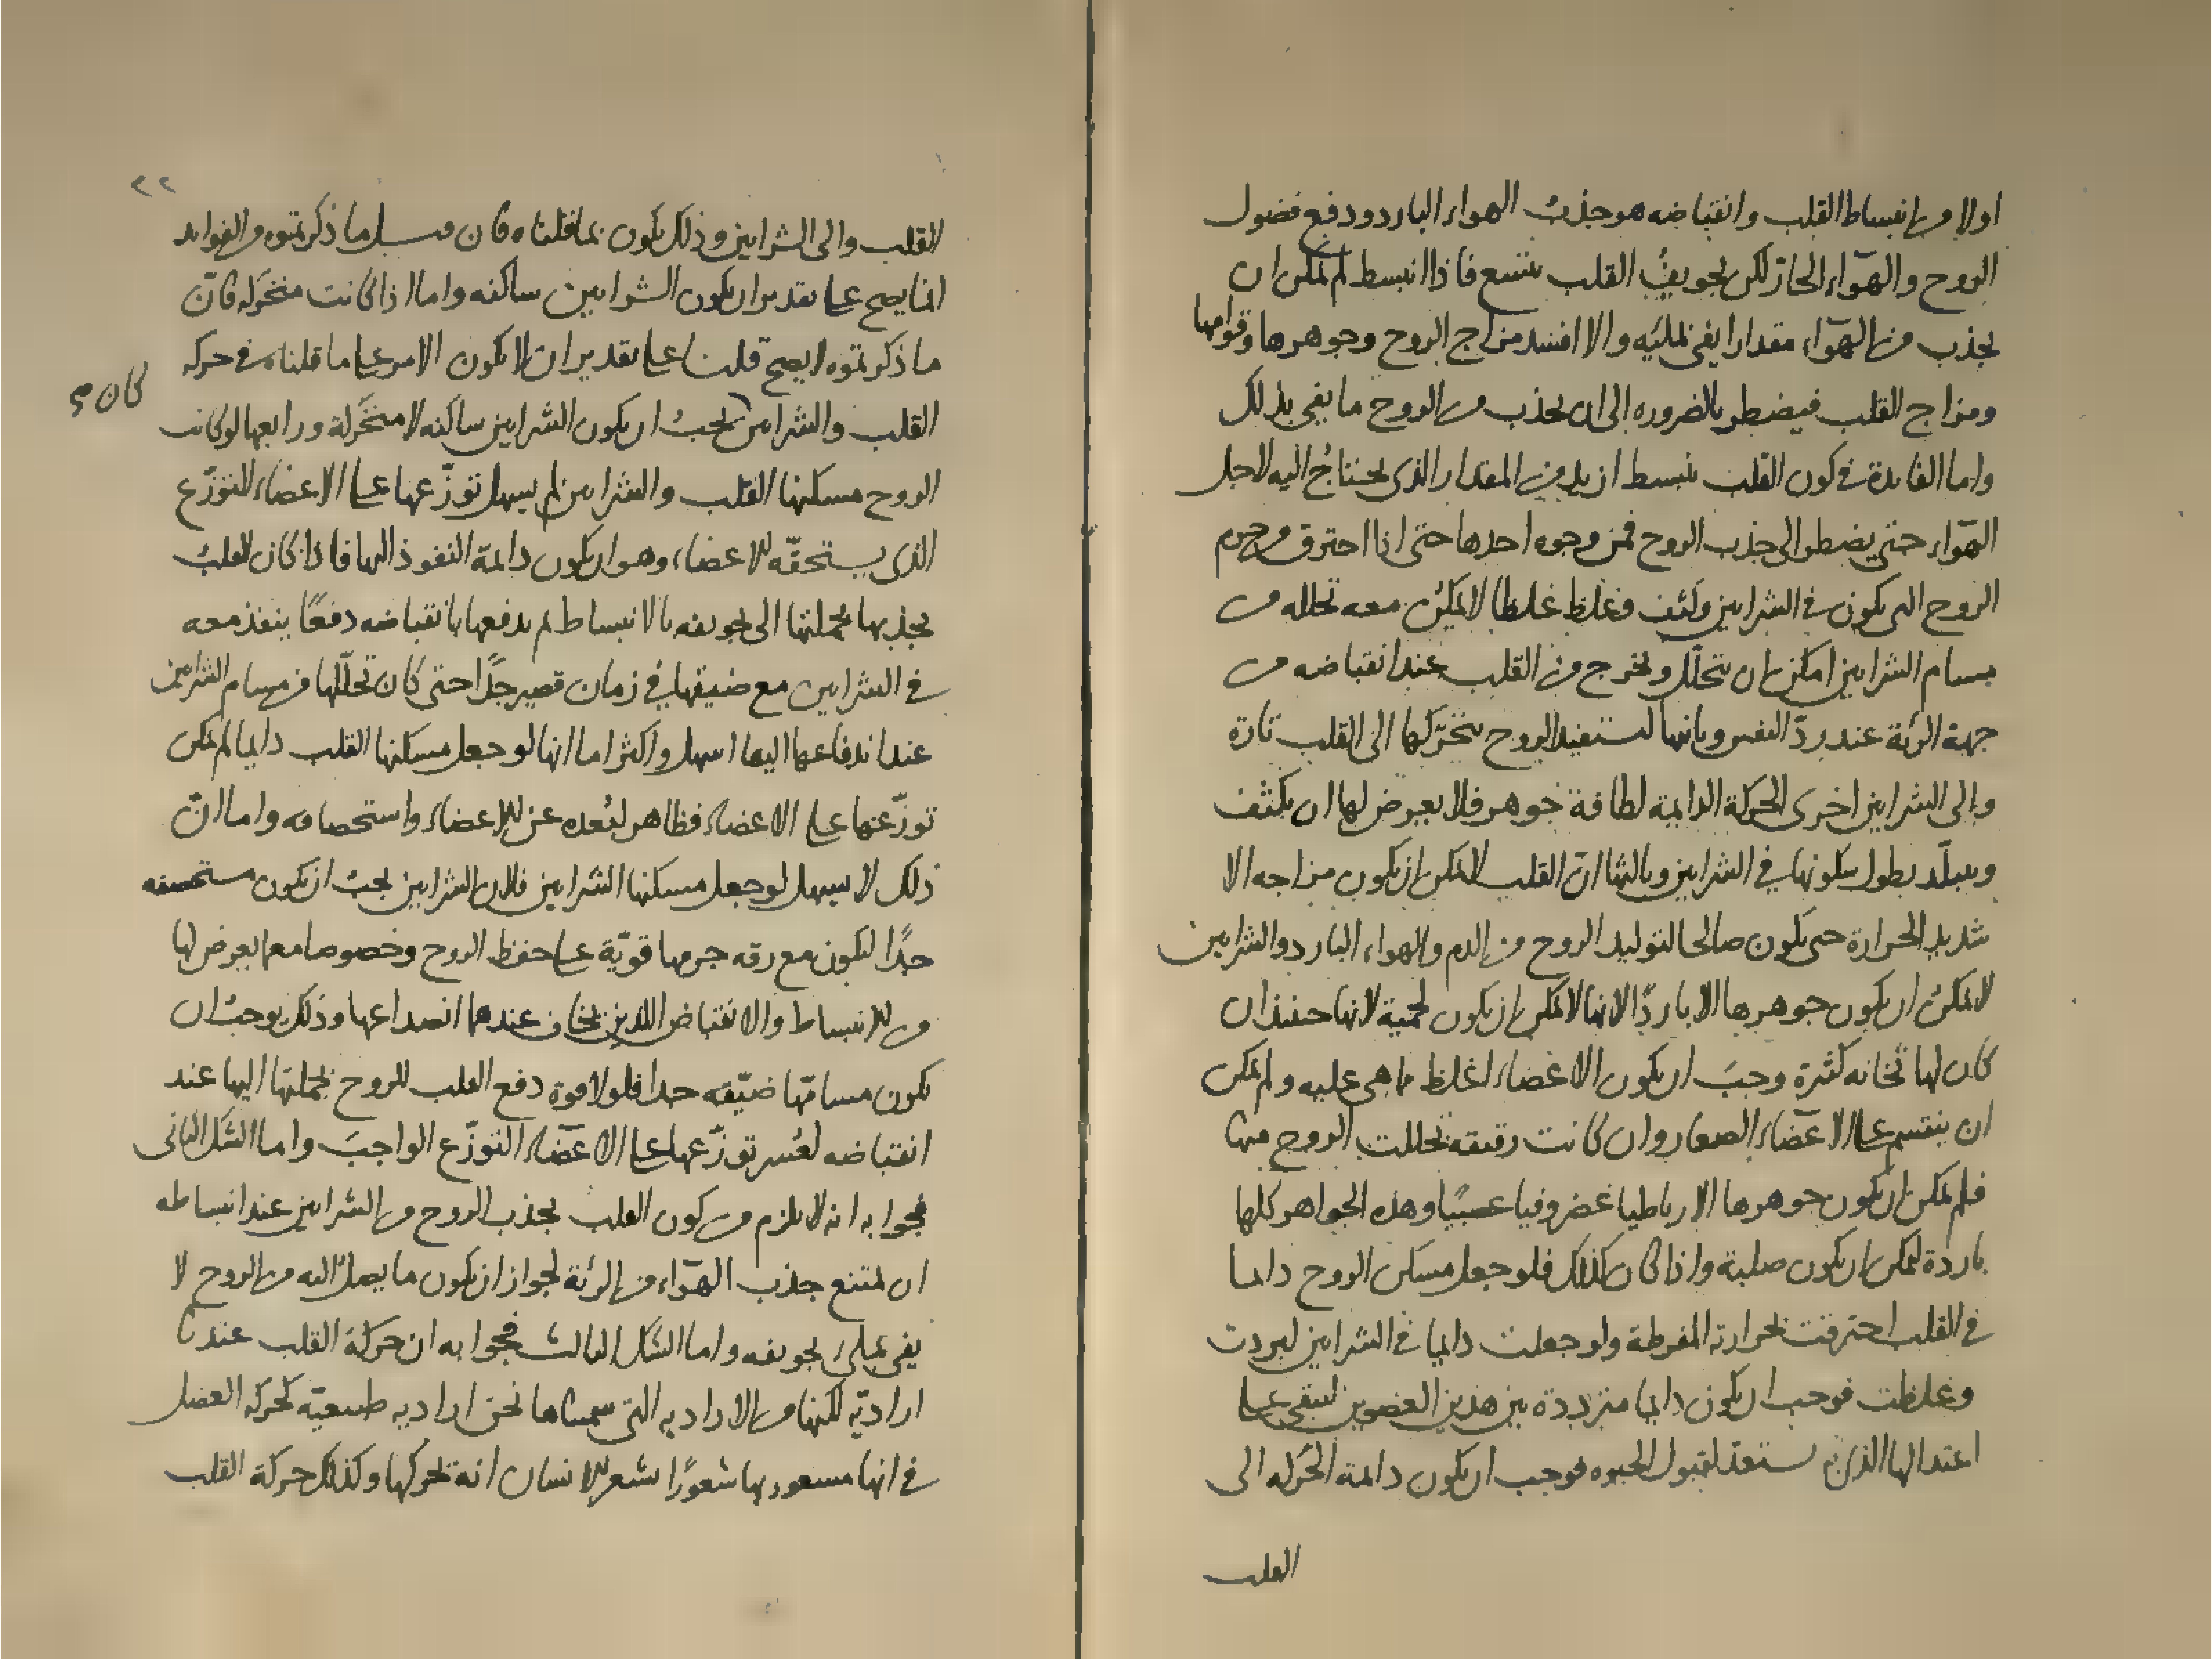 اولا من انبساط القلب وانقباضه هو جذب الهواء البارد ودفع فضول
الروح والهوآء الحارّ لكن تجويف القلب يتسع فاذا انبسط لم يمكن ان
يجذب من الهوآء مقدارا يفى بملئه والا افسد مزاج الروح وجوهرها وقوامها
ومزاج القلب فيضطر بالضروره الى ان يجذب من الروح ما يفى بذلك
واما الفايدة فى كون القلب ينبسط ازيد من المقدار الذى يحتاج اليه لاجل
الهوآء حتى يضطر الى جذب الروح فمن وجوه احدها حتى اذا احترق من جرم
الروح التى يكون فى الشرايين ولَثف وغلظ غلظا لا يمكن معه تحلله من
مسام الشرايين امكن ان يتحلّل ويخرج من القلب عند انقباضه من
جهة الرئة عند ردّ النفس وثانيها لتستفيد الروح بتحرّكها الى القلب تارة
والى الشرايين اخرى الحركة الدايمة لطافة جوهر فلا يعرض لها ان يكثف
ويتبلّد بطول سكونها فى الشرايين وثالثها انّ القلب لا يمكن ان يكون مزاجه الا
شديد الحرارة حتى يكون صالحا لتوليد الروح من الدم والهواء البارد والشرايين
لا يمكن ان يكون جوهرها الا باردًا لانها لا يمكن ان يكون لحمية لانها حينئذ ان
كان لها ثخانه كثيرة وجبَ ان يكون الاعضاء اغلظ مما هى عليه ولم يمكن
ان ينقسم على الاعضآء الصغار وان كانت رقيقه تحللت الروح منها
فلم يمكن ان يكون جوهرها الا رباطيا غضروفيا عصبيًا وهذه الجواهر كلها
باردة ليمكن ان يكون صلبة واذا كان كذلك فلو جعل مسكن الروح دايما
فى القلب احترقت بحرارته المفرطة ولو جعلت دايما فى الشرايين لبردت
وغلظت فوجب ان يكون دايما مترددة بين هذين العضوين لتبقى على
اعتدالها الذى به تستعدّ لقبول الحيوه فوجب ان يكون دائمة الحركه الى
القلب
٢٢
القلب والى الشرايين وذلك يكون بما قلناه فان قيل ما ذكرتموه من الفوايد
انما يصح على تقدير ان يكون الشرايين ساكنه واما اذا كانت متحركه فانّ
ما ذكرتموه لا يصح قلنا على تقدير ان لا يكون الامر على ما قلناه فى حركه
القلب والشرايين يجب ان يكون الشرايين ساكنه لا متحركة ورابعها لو كانت
كان صح
الروح مسكنها القلب والشرايين لم يسهل توزّعها على الاعضاء التوزّع
الذى يستحقّه الاعضاء وهو ان يكون دائمة النفوذ اليها فاذا كان القلبُ
يجذبها بجملتها الى تجويفه بالانبساط ثم يدفعها بانقباضه دفعًا ينفذ معه
فى الشرايين مع ضيقها فى زمان قصير جدًّا حتى كان تحلّلها من مسام الشرايين
عند اندفاعها اليها اسهل واكثر اما انها لو جعل مسكنها القلب دايما لم يمكن
توزّعها على الاعضاء فظاهر لبُعده عن الاعضاء واستحصافه واما انّ
ذلك لا يسهل لو جعل مسكنها الشرايين فلان الشرايين يجب ان يكون مستحصفه
جدًّا ليكون مع رقه جرمها قويّة على حفظ الروح وخصوصا مع ما يعرض لها
من الانبساط والانقباض اللذين يخاف عندهما انصداعها وذلك يوجبُ ان
يكون مسامّها ضيّقه جدا فلولا قوة دفع القلب للروح بجملتها اليها عند
انقباضه لعُسر توزّعها على الاعضآء التوزّع الواجبَ واما الشكل الثانى
فجوابه انه لا يلزم من كون القلب يجذب الروح من الشرايين عند انبساطه
ان يمتنع جذب الهوآء من الرئة لجواز ان يكون ما يصل اليه من الروح لا
يفى بملئ تجويفه واما الشكل الثالث فجوابه ان حركة القلب عندنا
اراديّه لكنها من الاراديه التى سميناها نحن اراديه طبيعيّه كحركه العضل
فى انها مشعور بها شعورًا يشعر الانسان انه يحركها وكذلك حركة القلب